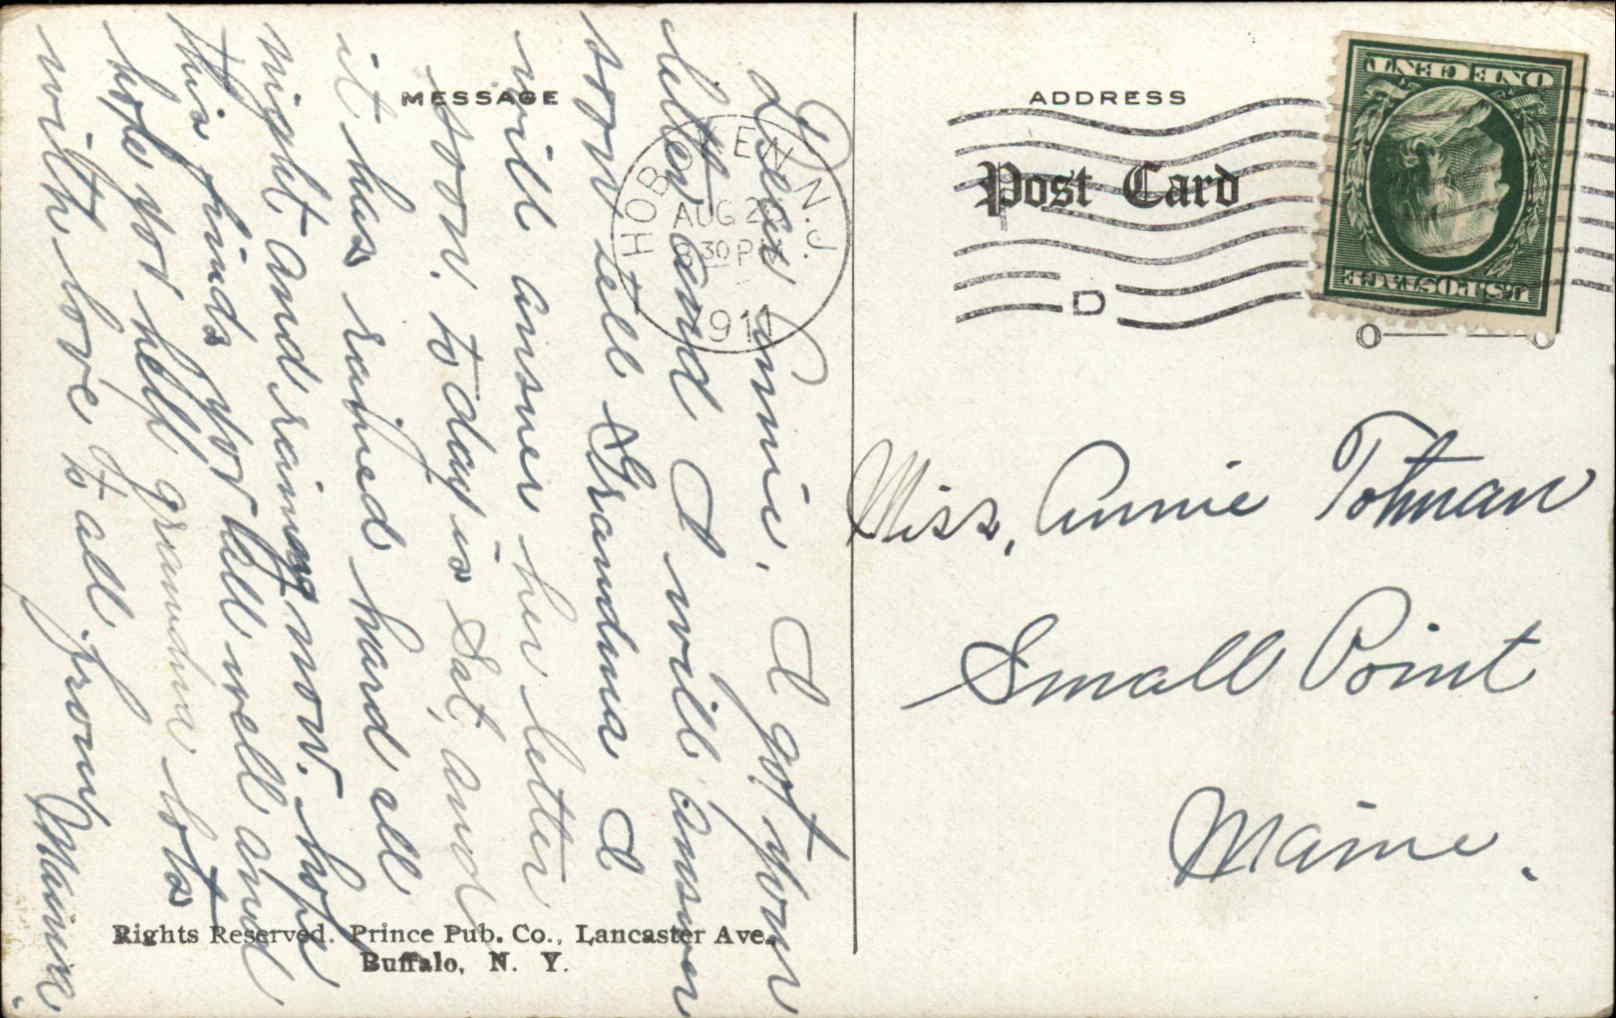 MESSAGE
ADDRESS
Post Card
U.S. POSTAGE
ONE CENT
HOBOKEN, N.J.
AUG 26
8 30 PM
1911
D
Dear Annie, I got your
letter and I will answer
soon tell Grandma I
will answer her letter
soon. to day is Sat, and
it has rained hard all
night and raining now. hope
this finds you all well and
hope you help grandma lots
with love to all from
Miss, Annie Totman
Small Point
Maine.
Rights Reserved. Prince Pub. Co., Lancaster Ave.
Buffalo, N. Y.